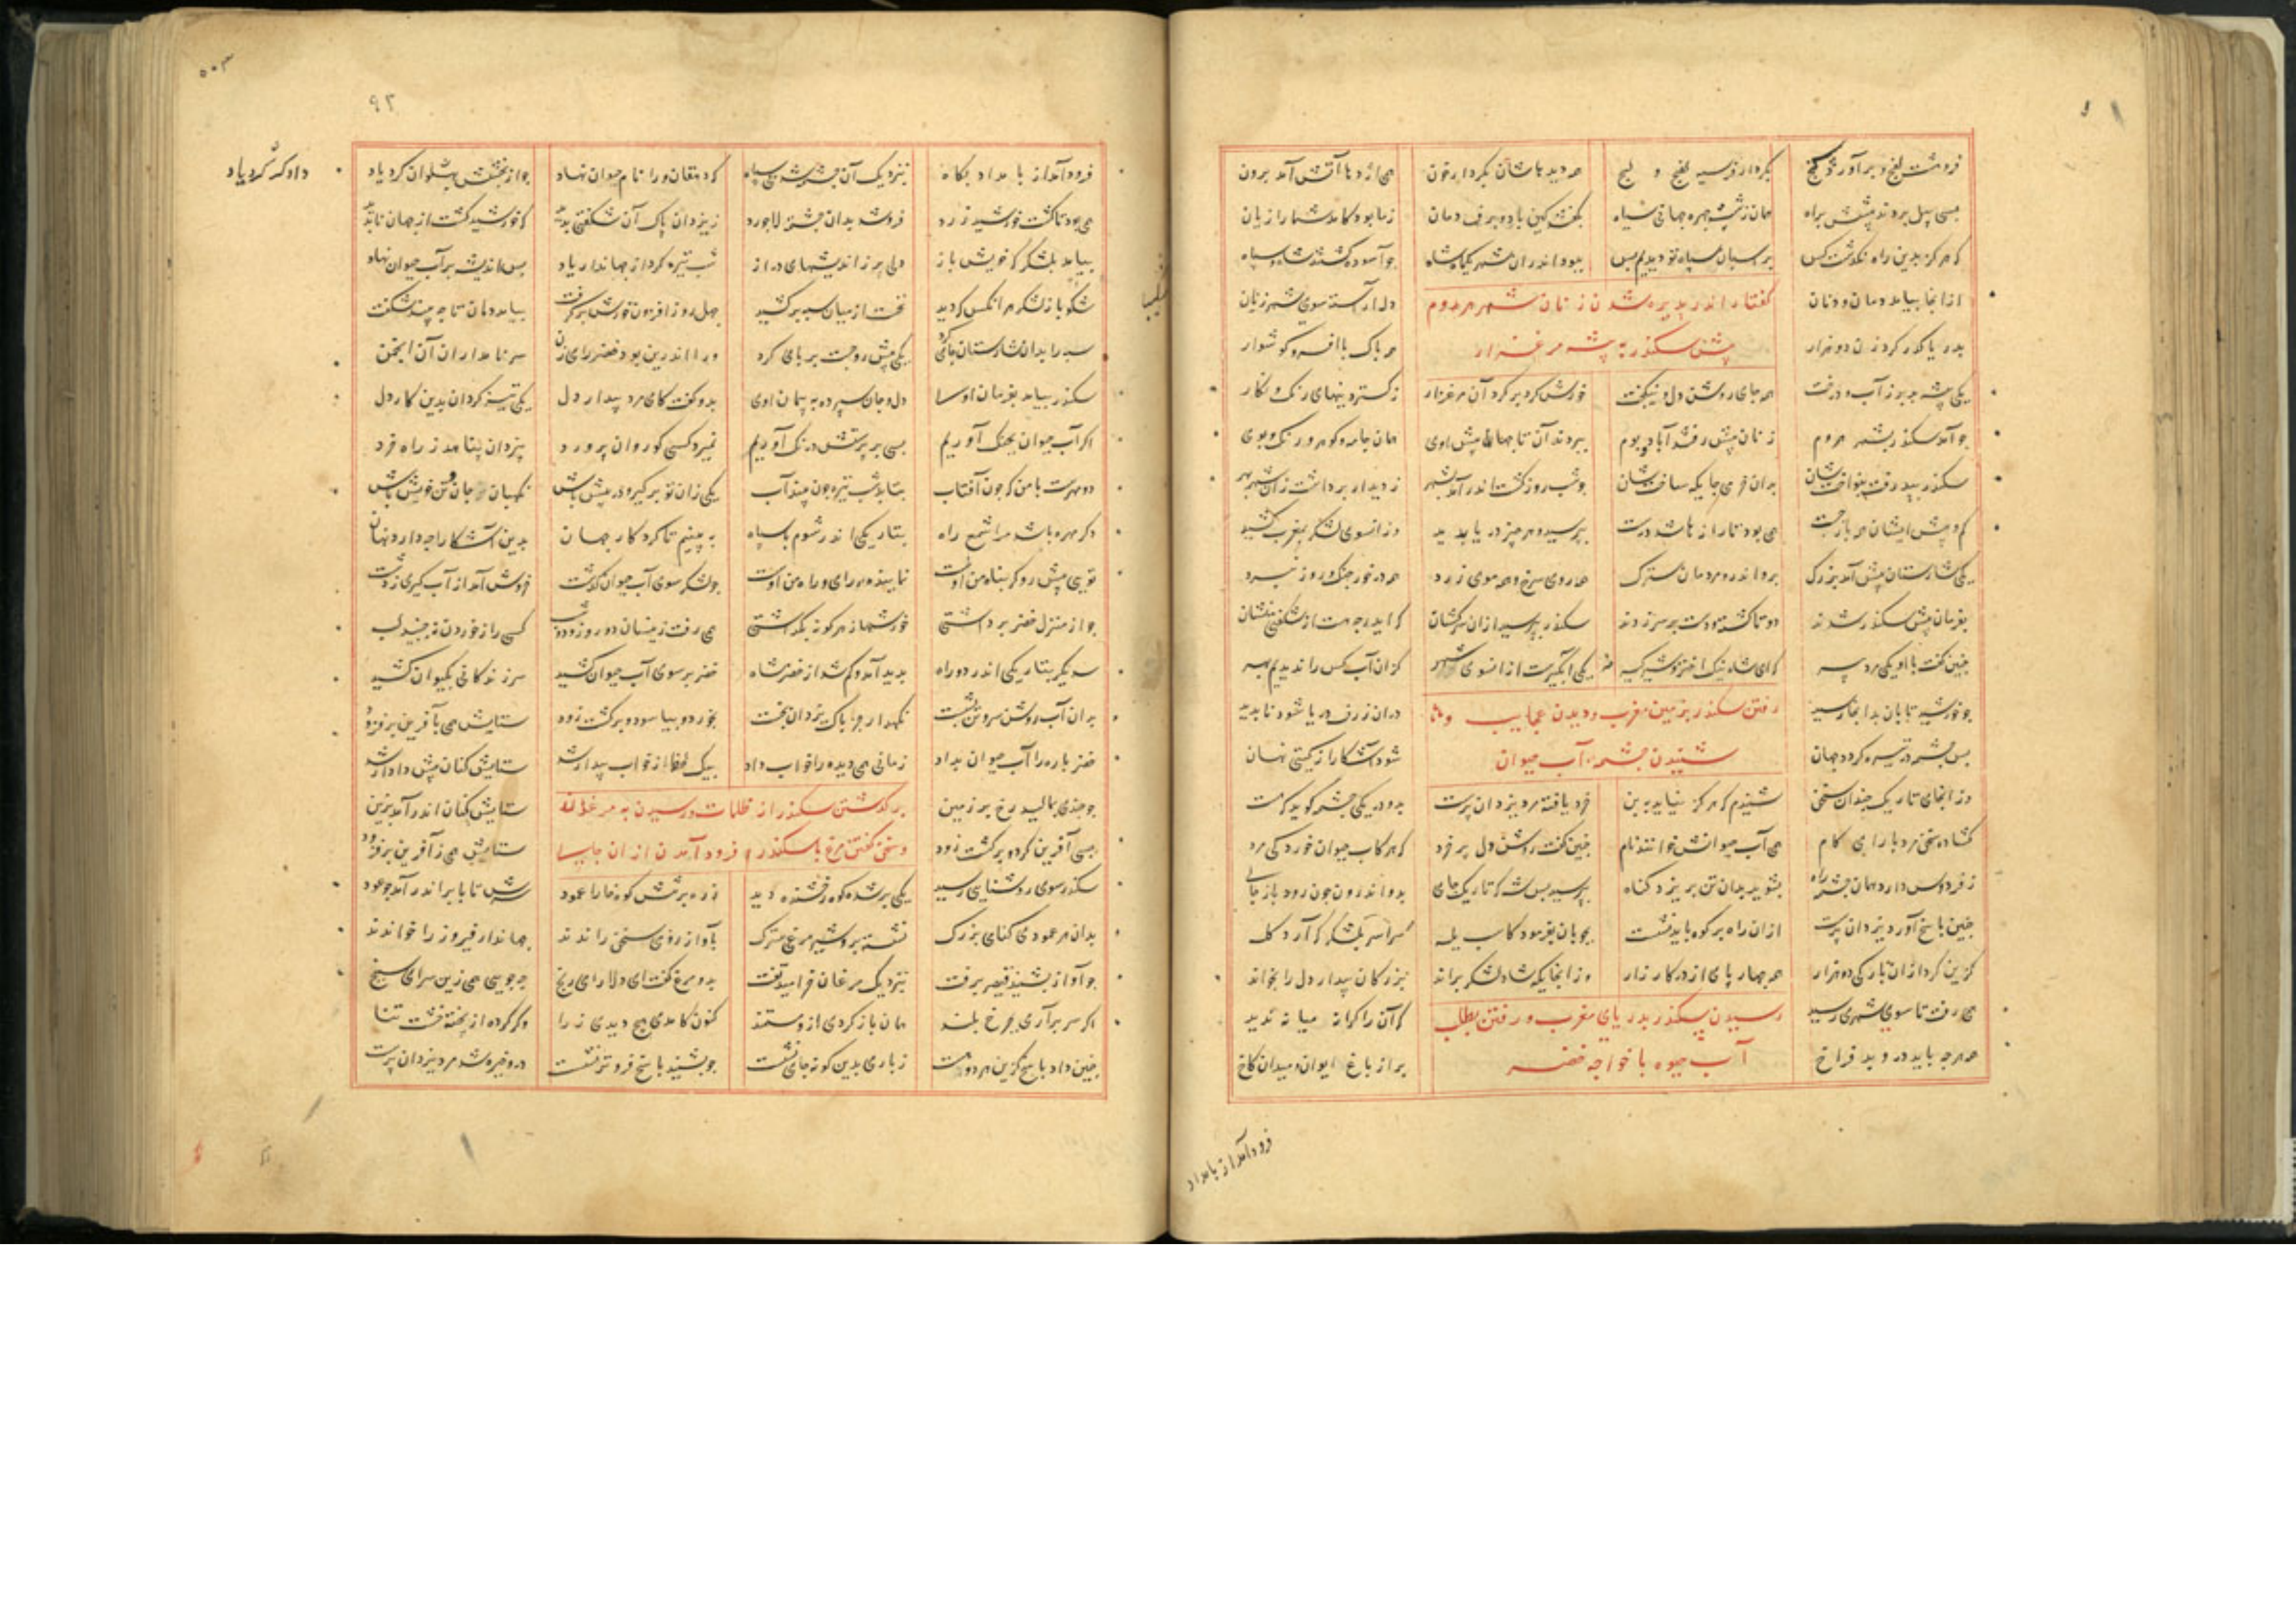 فروهشت لفج و برآورد کفج بکردار قیر سیه لفج و لبج همه دیدهاشان بکردار خون همی از دهان آتش آمد برون
بسی پیل بردند پیشش براه همان زشت چهره جهانی سیاه بگفتند کین باد و برف دمان زما بود کامد شما را زیان
که هرگز بدین راه نگذشت کس برینسان سپاه تو دیدیم بس ببود اندران شهر یکماه شاه جو آسوده گشتند شاه و سپاه
از انجا بیامد دمان و دنان دل آراسته سوی شهر زنان
گفتار اندر پذیره شدن زنان شهر هروم
بدریا گذر کرد زن دو هزار همه پاک با افسر و گوشوار
پیش سکندر به پیشه مرغزار
یکی بیشه بد پر ز آب و درخت همه جای روشن دل و نیکبخت خورش گرد بر گرد آن مرغزار ز گستردنیهای رنگ و نگار
جو آمد سکندر بشهر هروم زنان پیش رفتند آباد بوم ببردند آن تاجها پیش اوی همان جامه و گوهر و رنگ و بوی
سکندر بپذرفت و بنواختشان بدان خرمی جایگه ساختشان جو شب روز گشت اندر آمد بشهر ز دیدار برداشت زان شهر بهر
کم و بیش ایشان همی بازجست همی بود تا رازها شد درست بپرسید هر چیز و دریا بدید وزانسوی لشکر بمغرب کشید
یکی شارستان پیش آمد بزرگ برو اندرون مردمان سترگ همه روی سرخ و همه موی زرد همه در خور جنگ روز نبرد
بفرمان پیش سکندر شدند دوتا گشته و دست بر سر زدند سکندر بپرسید ازان سرکشان که ایدر چه هست از شگفتی نشان
چنین گفت با او یکی مرد پیر که ای شاه نیک اختر و شیرگیر یکی آبگیرست ازانسوی شهر کزان آب کس را ندیدیم بهر
جو خورشید تابان بدانجا رسید دران ژرف دریا شود ناپدید
رفتن سکندر بزمین مغرب و دیدن عجایب و
پس چشمه در تیره گردد جهان شود آشکارا ز گیتی نهان
شنیدن چشمه آب حیوان
وز انجای تاریک چندان سخن شنیدم که هرگز نیاید به بن خرد یافته مرد یزدان پرست بدو در یکی چشمه گوید که هست
گشاده سخن مرد با رای و کام همی آب حیوانش خوانند نام چنین گفت روشن دل پر خرد که هر کاب حیوان خورد کی مرد
ز فردوس دارد بدان چشمه راه بشوید بدان تن بریزد گناه بپرسید پس شه که تاریک جای بدو اندرون چون رود بازجای
چنین پاسخ آورد یزدان پرست ازان راه بر کوه باید نشست بچوپان بفرمود کاسب یله سراسر بلشکر که آرد گله
گزین کرد ازان بارگی ده هزار همه چهار پای از در کارزار وز انجایگه شاد لشکر براند بزرگان بیدار دل را بخواند
همی رفت تا سوی شهری رسید که آن را کرانه میانه ندید
رسیدن سکندر بدریای مغرب و رفتن بطلب
همه هرچه باید درو بد فراخ پر از باغ و ایوان و میدان و کاخ
آب حیوه با خواجه خضر
فرود آمد از بامداد
۵۰۳
۹۲
فرود آمد از بامداد پگاه بنزدیک آن چشمه شد بی سپاه که دهقان ورا نام حیوان نهاد جو از بخشش پهلوان کرد یاد
داد کرد یاد
همی بود تا گشت خورشید زرد فروشد بدان چشمه لاجورد ز یزدان پاک آن شگفتی بدید که خورشید گشت از جهان ناپدید
بیامد بلشکر که خویش باز دلی پر ز اندیشهای دراز شب تیره کرد از جهاندار یاد پس اندیشه بر آب حیوان نهاد
شکیبا ز لشکر هر آنکس که دید نخست از میان سپه برکشید چهل روز افزون خورش برگرفت بیامد دمان تا چه بیند شگفت
سپه را بدان شارستان جای کرد یکی پیش رو جست بر پای کرد ورا اندرین بود خضر رای زن سر نامداران آن انجمن
سکندر بیامد بفرمان اوسا دل و جان سپرده به پیمان اوی بدو گفت کای مرد بیدار دل یکی تیز گردان بدین کار دل
اگر آب حیوان بچنگ آوریم بسی بر پرستش درنگ آوریم نمیرد کسی کو روان پرورد بیزدان پناهد ز راه خرد
دو مهرست با من که چون آفتاب بتابد شب تیره چون بیند آب یکی زان تو برگیر و در پیش باش نگهبان جان و تن خویش باش
دگر مهره باشد مرا شمع راه بتاریکی اندر شوم با سپاه به بینیم تا کردگار جهان بدین آشکارا چه دارد نهان
تویی پیش رو گر پناه من اوست نماینده رای و راه من اوست چو لشکر سوی آب حیوان گذشت خروش آمد الله اکبر ز دشت
جو از منزلی خضر برداشتی خورشها ز هرگونه بگذاشتی همی رفت زینسان دو روز و دو شب کسی را ز خوردن نجنبید لب
سه دیگر بتاریکی اندر دو راه پدید آمد و گم شد از خضر شاه خضر بر سوی آب حیوان کشید سر زندگانی بکیوان کشید
بدان آب روشن سر و تن بشست نگهدار جز پاک یزدان نجست بخورد و بیاسود و برگشت زود ستایش همی بآفرین بر فزود
خضر باره را آب حیوان بداد زمانی همی دیده را خواب داد بیک لحظه از خواب بیدار شد ستایش کنان پیش دادار شد
جو جندی بمالید رخ بر زمین ستایش کنان اندر آمد بزین
برگذشتن سکندر از ظلمات و رسیدن به مرغزار
بسی آفرین کرد و برگشت زود ستایش همی ز آفرین بر فزود
و سخن گفتن مرغ با سکندر و فرود آمدن از ان جایها
سکندر سوی روشنایی رسید یکی بر شده کوه رخشنده دید زده بر سرش گونه خارا عمود سرش تا بابر اندر آمد چو عود
بدان هر عمودی کنامی بزرگ نشسته برو شیر مرغی سترگ بآواز رومی سخن راندند جهاندار فیروز را خواندند
جو آواز بشنید قیصر برفت بنزدیک مرغان خرامید تفت بدو مرغ گفت ای دلارای رنج چه جویی همی زین سرای سپنج
اگر سر برآری بچرخ بلند همان باز گردی ازو مستمند کنون کامدی هیچ دیدی زنا وگر کرده از پخته خشت تنا
چنین داد پاسخ کزین هر دو هست زیاری بدین گونه جای نشست چو بشنید پاسخ فروتر نشست درو خیره شد مرد یزدان پرست